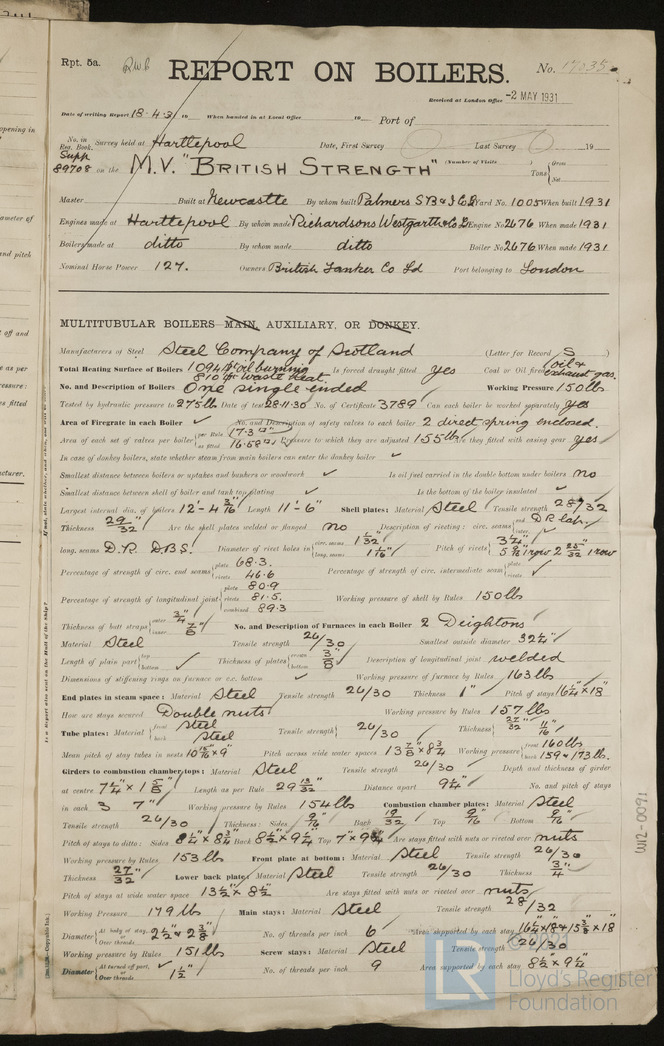 Rpt. 5a.
REPORT ON BOILERS.
No. 17035
Received at London Office -2 MAY 1931
Date of writing Report 18.4.31 19 When handed in at Local Office 19 Port of
No. in Reg. Book. Survey held at Hartlepool Date, First Survey Last Survey 19
Supp 89708 on the M.V. "BRITISH STRENGTH" (Number of Visits ) Tons { Gross Net
Master Built at Newcastle By whom built Palmers S.B & I Co Ld Yard No. 1005 When built 1931
Engines made at Hartlepool By whom made Richardsons Westgarth & Co Ld Engine No 2676 When made 1931
Boilers made at ditto By whom made ditto Boiler No 2676 When made 1931
Nominal Horse Power 127. Owners British Tanker Co Ld Port belonging to London
MULTITUBULAR BOILERS MAIN, AUXILIARY, OR DONKEY.
Manufacturers of Steel Steel Company of Scotland (Letter for Record S )
Total Heating Surface of Boilers 1094 for oil burning 810 for waste heat. Is forced draught fitted yes Coal or Oil fired oil & exhaust gas.
No. and Description of Boilers One single-ended Working Pressure 150 lbs
Tested by hydraulic pressure to 275 lb Date of test 28.11.30 No. of Certificate 3789 Can each boiler be worked separately yes
Area of Firegrate in each Boiler ✓ No. and Description of safety valves to each boiler 2 direct spring enclosed.
Area of each set of valves per boiler { per Rule 17.3 □" as fitted 16.58 □" Pressure to which they are adjusted 155 lbs Are they fitted with easing gear yes
In case of donkey boilers, state whether steam from main boilers can enter the donkey boiler ✓
Smallest distance between boilers or uptakes and bunkers or woodwork ✓ Is oil fuel carried in the double bottom under boilers no
Smallest distance between shell of boiler and tank top plating ✓ Is the bottom of the boiler insulated ✓
Largest internal dia. of boilers 12'-4 3/16" Length 11'-6" Shell plates: Material Steel Tensile strength 28/32
Thickness 29/32" Are the shell plates welded or flanged no Description of riveting: circ. seams { end D.R. lap. inter. ✓
long. seams D.R. D.B.S. Diameter of rivet holes in { circ. seams 1 1/32" long. seams 1 1/16" Pitch of rivets { 3 3/4" 5 9/16 1 row 2 25/32 1 row
Percentage of strength of circ. end seams { plate 68.3. rivets 46.6 Percentage of strength of circ. intermediate seam { plate rivets ✓
Percentage of strength of longitudinal joint { plate 80.9 rivets 81.5. combined 89.3 Working pressure of shell by Rules 150 lbs
Thickness of butt straps { outer 3/4" inner 7/8" No. and Description of Furnaces in each Boiler 2 Deightons
Material Steel Tensile strength 26/30 Smallest outside diameter 32 1/4"
Length of plain part { top bottom ✓ Thickness of plates { crown bottom 3/8" Description of longitudinal joint welded
Dimensions of stiffening rings on furnace or c.c. bottom ✓ Working pressure of furnace by Rules 163 lbs
End plates in steam space: Material Steel Tensile strength 26/30 Thickness 1" Pitch of stays 16 1/4" × 18"
How are stays secured Double nuts Working pressure by Rules 157 lbs
Tube plates: Material { front Steel back Steel Tensile strength { 26/30 Thickness { 27/32" 11/16"
Mean pitch of stay tubes in nests 10 15/16 × 9" Pitch across wide water spaces 13 7/8 × 8 3/4 Working pressure { front 160 lbs back 159 & 173 lbs.
Girders to combustion chamber tops: Material Steel Tensile strength 26/30 Depth and thickness of girder
at centre 7 1/4" × 1 5/8" Length as per Rule 29 13/32" Distance apart 9 1/4" No. and pitch of stays
in each 3 7" Working pressure by Rules 154 lbs Combustion chamber plates: Material Steel
Tensile strength 26/30 Thickness: Sides 9/16" Back 19/32" Top 9/16" Bottom 9/16"
Pitch of stays to ditto: Sides 8 1/4" × 8 3/4" Back 8 1/2" × 9 1/4" Top 7" × 9 1/4" Are stays fitted with nuts or riveted over nuts
Working pressure by Rules 153 lbs Front plate at bottom: Material Steel Tensile strength 26/30
Thickness 27/32" Lower back plate: Material Steel Tensile strength 26/30 Thickness 3/4"
Pitch of stays at wide water space 13 1/2" × 8 1/2" Are stays fitted with nuts or riveted over nuts
Working Pressure 179 lbs Main stays: Material Steel Tensile strength 28/32
Diameter { At body of stay, Over threads 2 1/2" & 2 3/8" No. of threads per inch 6 Area supported by each stay 16 1/4" × 18" & 15 3/8" × 18
Working pressure by Rules 151 lbs Screw stays: Material Steel Tensile strength 26/30
Diameter { At turned off part, ✓ Over threads 1 1/2" No. of threads per inch 9 Area supported by each stay 8 1/2" × 9 1/4"
W12-0091
© 2021
LR
Lloyd's Register
Foundation